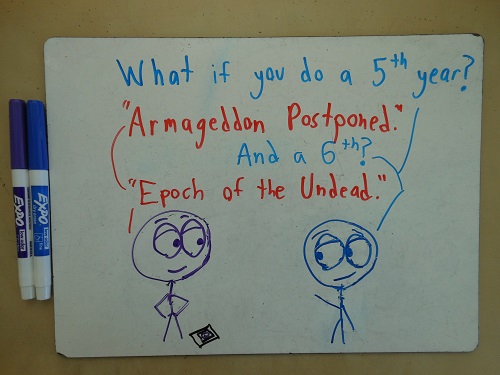 What if you do a 5th year?
"Armageddon Postponed."
And a 6th?
"Epoch of the Undead."
EXPO
EXPO